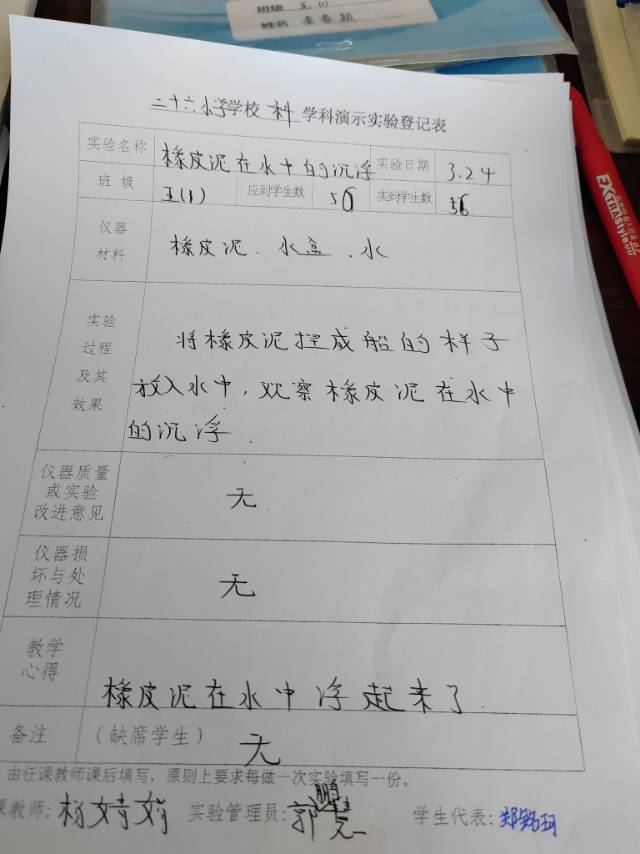 班级 五(1)
姓名 李春颖
二十六小学学校 科 学科演示实验登记表
实验名称 橡皮泥在水中的沉浮 实验日期 3.24
班 级 五(1) 应到学生数 56 实到学生数 56
仪器
材料
橡皮泥、水盒、水
实验
过程
及其
效果
将橡皮泥捏成船的样子
放入水中,观察橡皮泥在水中
的沉浮.
仪器质量
或实验
改进意见
无
仪器损
坏与处
理情况
无
教学
心得
橡皮泥在水中浮起来了
备注 (缺席学生) 无
由任课教师课后填写,原则上要求每做一次实验填写一份。
课教师: 杨文 实验管理员: 郭鹏 学生代表: 郑铭珂
EXTRAStyle